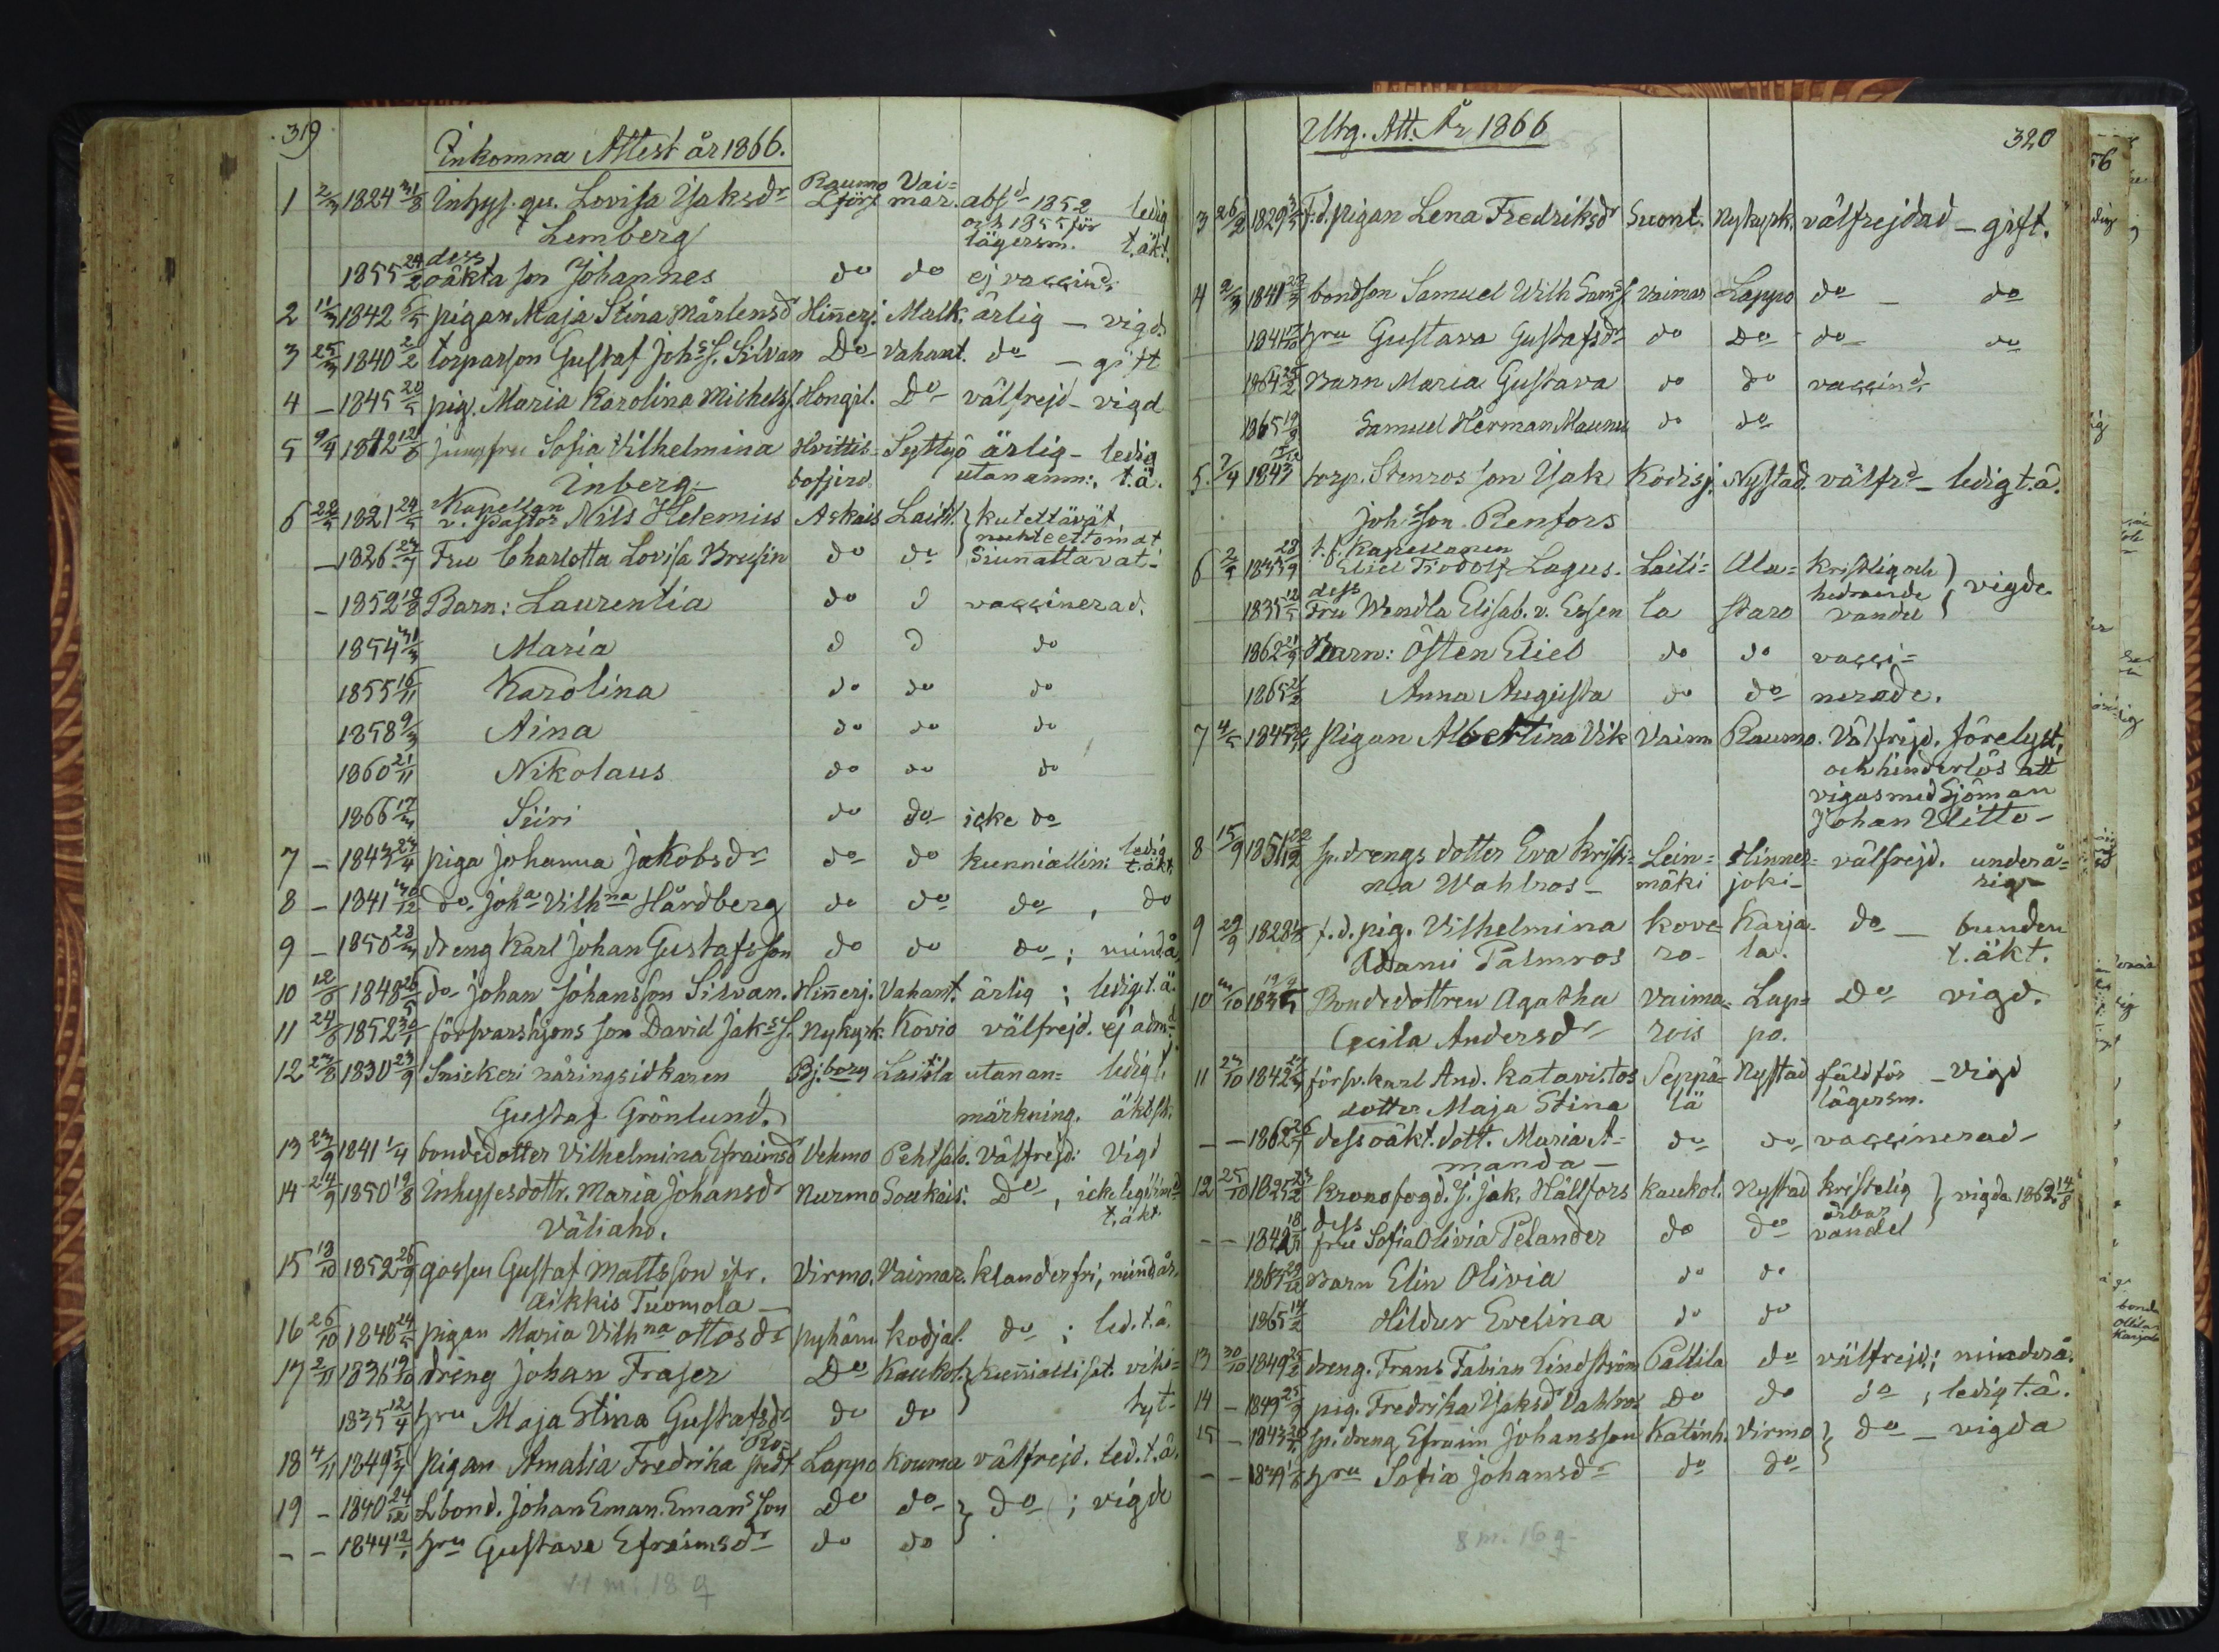 319
Inkomna Attest år 1866.
1 2/3 1824 31/8 Inhys. qv. Lovisa Isaksdr Raumo Lförs Vai=mar. absd 1852 ledig
Lemberg och 1855 för lägersm. t.äkt.
1855 24/2 dess oäkta son Johannes do do ej vaccind.
2 11/3 1842 6/5 pigan Maja Stina Mårtensdr Hinnerj. Malk. ärlig – vigd
3 25/3 1840 2/2 torparson Gustaf Johs S. Silvan Do Vahant. do – gift
4 – 1845 20/5 pig. Maria Karolina Michelsd. Hongil. Do välfrejd – vigd
5 9/4 1842 12/6 jungfru Sofia Vilhelmina Hvittis= Lyttyö ärlig – ledig
Inberg bofjerd utan anm:. t.ä.
6 22/5 1821 24/5 Kapellan v. Pastor Nils Helenius Askais Laitil. kutettävät nuhteettomat
– 1826 23/7 Fru Charlotta Lovisa Brusin do do siunattavat.
– 1852 18/8 Barn: Laurentia do d vaccinerad.
1854 31/3 Maria d d do
1855 16/11 Karolina do do do
1858 9/3 Aina do do do
1860 21/11 Nikolaus do do do
1866 17/3 Siiri do do icke do
7 – 1843 23/4 piga Johanna Jakobsdr do do kunniallin: ledig t.äkt.
8 – 1841 30/12 do. Joha Vilhna Hårdberg do do do , do
9 – 1850 28/3 dreng Karl Johan Gustafsson do do do ; mind.å.
10 12/6 1848 26/5 do Johan Johansson Silvan. Hinnerj. Vahant. ärlig ; ledig t.ä.
11 24/6 1852 30/1 försvarshjons son David Jaks S. Nykyrk. Kovio välfrejd. ej admd
12 23/8 1830 23/9 Snickeri näringsidkaren Bj.borg Laitila utan an= ledig t.
Gustaf Grönlund. märkning. äktsk.
13 23/9 1841 1/4 bondedotter Vilhelmina Efraimsdr Vehmo Pehtsalo. Välfrejd: Vigd
14 24/9 1850 19/8 Inhysesdottr. Maria Johansdr Nurmo Soukais. Do , icke legitimd t.äkt.
Väliaho.
15 13/10 1852 26/9 gossen Gustaf Mattsson ifr. Virmo. Vaimar. klanderfri, mind.år.
Aikkis Tuomola –
16 26/10 1848 24/5 pigan Maria Vilhna Ottosdr Pyhäm. Kodjal. do ; led. t.ä.
17 2/11 1836 19/10 dreng Johan Fraser Do Kaukol. kunnialliset. vihi=
1835 12/4 hru Maja Stina Gustafsdr do do tyt.
18 4/11 1849 5/7 pigan Amalia Fredrika Ro=stedt Lappo Kouma välfrejd. led. t.ä.
19 – 1840 24/12 Lbond. Johan Eman. Emans son Do do do ; vigde
– – 1844 12/1 hru Gustava Efraimsdr do do
11 m. 18 q
Utg. Att. År 1866
320
3 26/2 1829 3/5 F.d. pigan Lena Fredriksdr Suont. Nykyrk. välfrejdad – gift.
4 2/3 1841 23/3 bondson Samuel Wilh Sams S Vaimar Lappo do – do
1841 17/10 hru Gustava Gustafsdr do Do do do
1864 25/2 Barn Maria Gustava do do vaccind.
1865 19/9 Samuel Herman Maunu do do
5 7/4 1843 17/12 torp. Stenros son Isak Kodisj. Nystad. välfrd – ledig t.ä.
Johsson Renfors
6 2/5 1835 28/9 t.f. Kapellanen Eliel Teodolf Lagus. Laiti= Ala= kristlig och hedrande vigde
1835 12/5 dess Fru Wendla Elisab. v. Essen la staro vandel
1862 21/9 Barn: Östen Eliel do do vacci=
1865 21/2 Anna Augusta do do nerade.
7 4/5 1845 pigan Albertina Vik Vaim. Raumo. Välfrejd. förelyst,
och hinderlös att
vigas med Sjöman
Johan Uitto –
8 15/9 1851 22/12 sp. drengs dotter Eva Kristi= Lein= Hinner= välfrejd. underå=
na Wahlros – mäki joki – rig –
9 29/9 1828 f.d. pig. Vilhelmina Kove= Karja= do – bunden
Adami Palmros ro. la. t. äkt.
10 3/10 1835 19/9 Bondedottren Agatha Vaima= Lap= Do vigd.
Cecila Andersdr rois po.
11 23/10 1842 försv. karl And. Katavistos Seppä= Nystad fäld för – vigd
dotter Maja Stina lä lägersm.
– – 1862 26/7 dess oäkt. dott. Maria A= do do vaccinerad –
manda –
12 25/10 1825 23/2 Kronofogd. J. Jak. Hällfors Kaukol. Nystad kristelig vigda 1862 14/8
– – 1842 18/5 dess fru Sofia Olivia Pelander do do ärbar vandel
1863 29/12 Barn Elin Olivia do do
1865 14/2 Hildur Evelina do do
13 30/10 1849 25/2 dreng. Frans Fabian Lindström Palttila do välfrejd.; minderå.
14 – 1849 25/9 pig. Fredrika Isaksdr Vahlros Do do do ; ledig t.ä.
15 – 1843 20/5 sp. dreng Efraim Johansson Katinh. Virmo do – vigda
– – 1839 1/6 hru Sofia Johansdr do do
8 m. 16 q